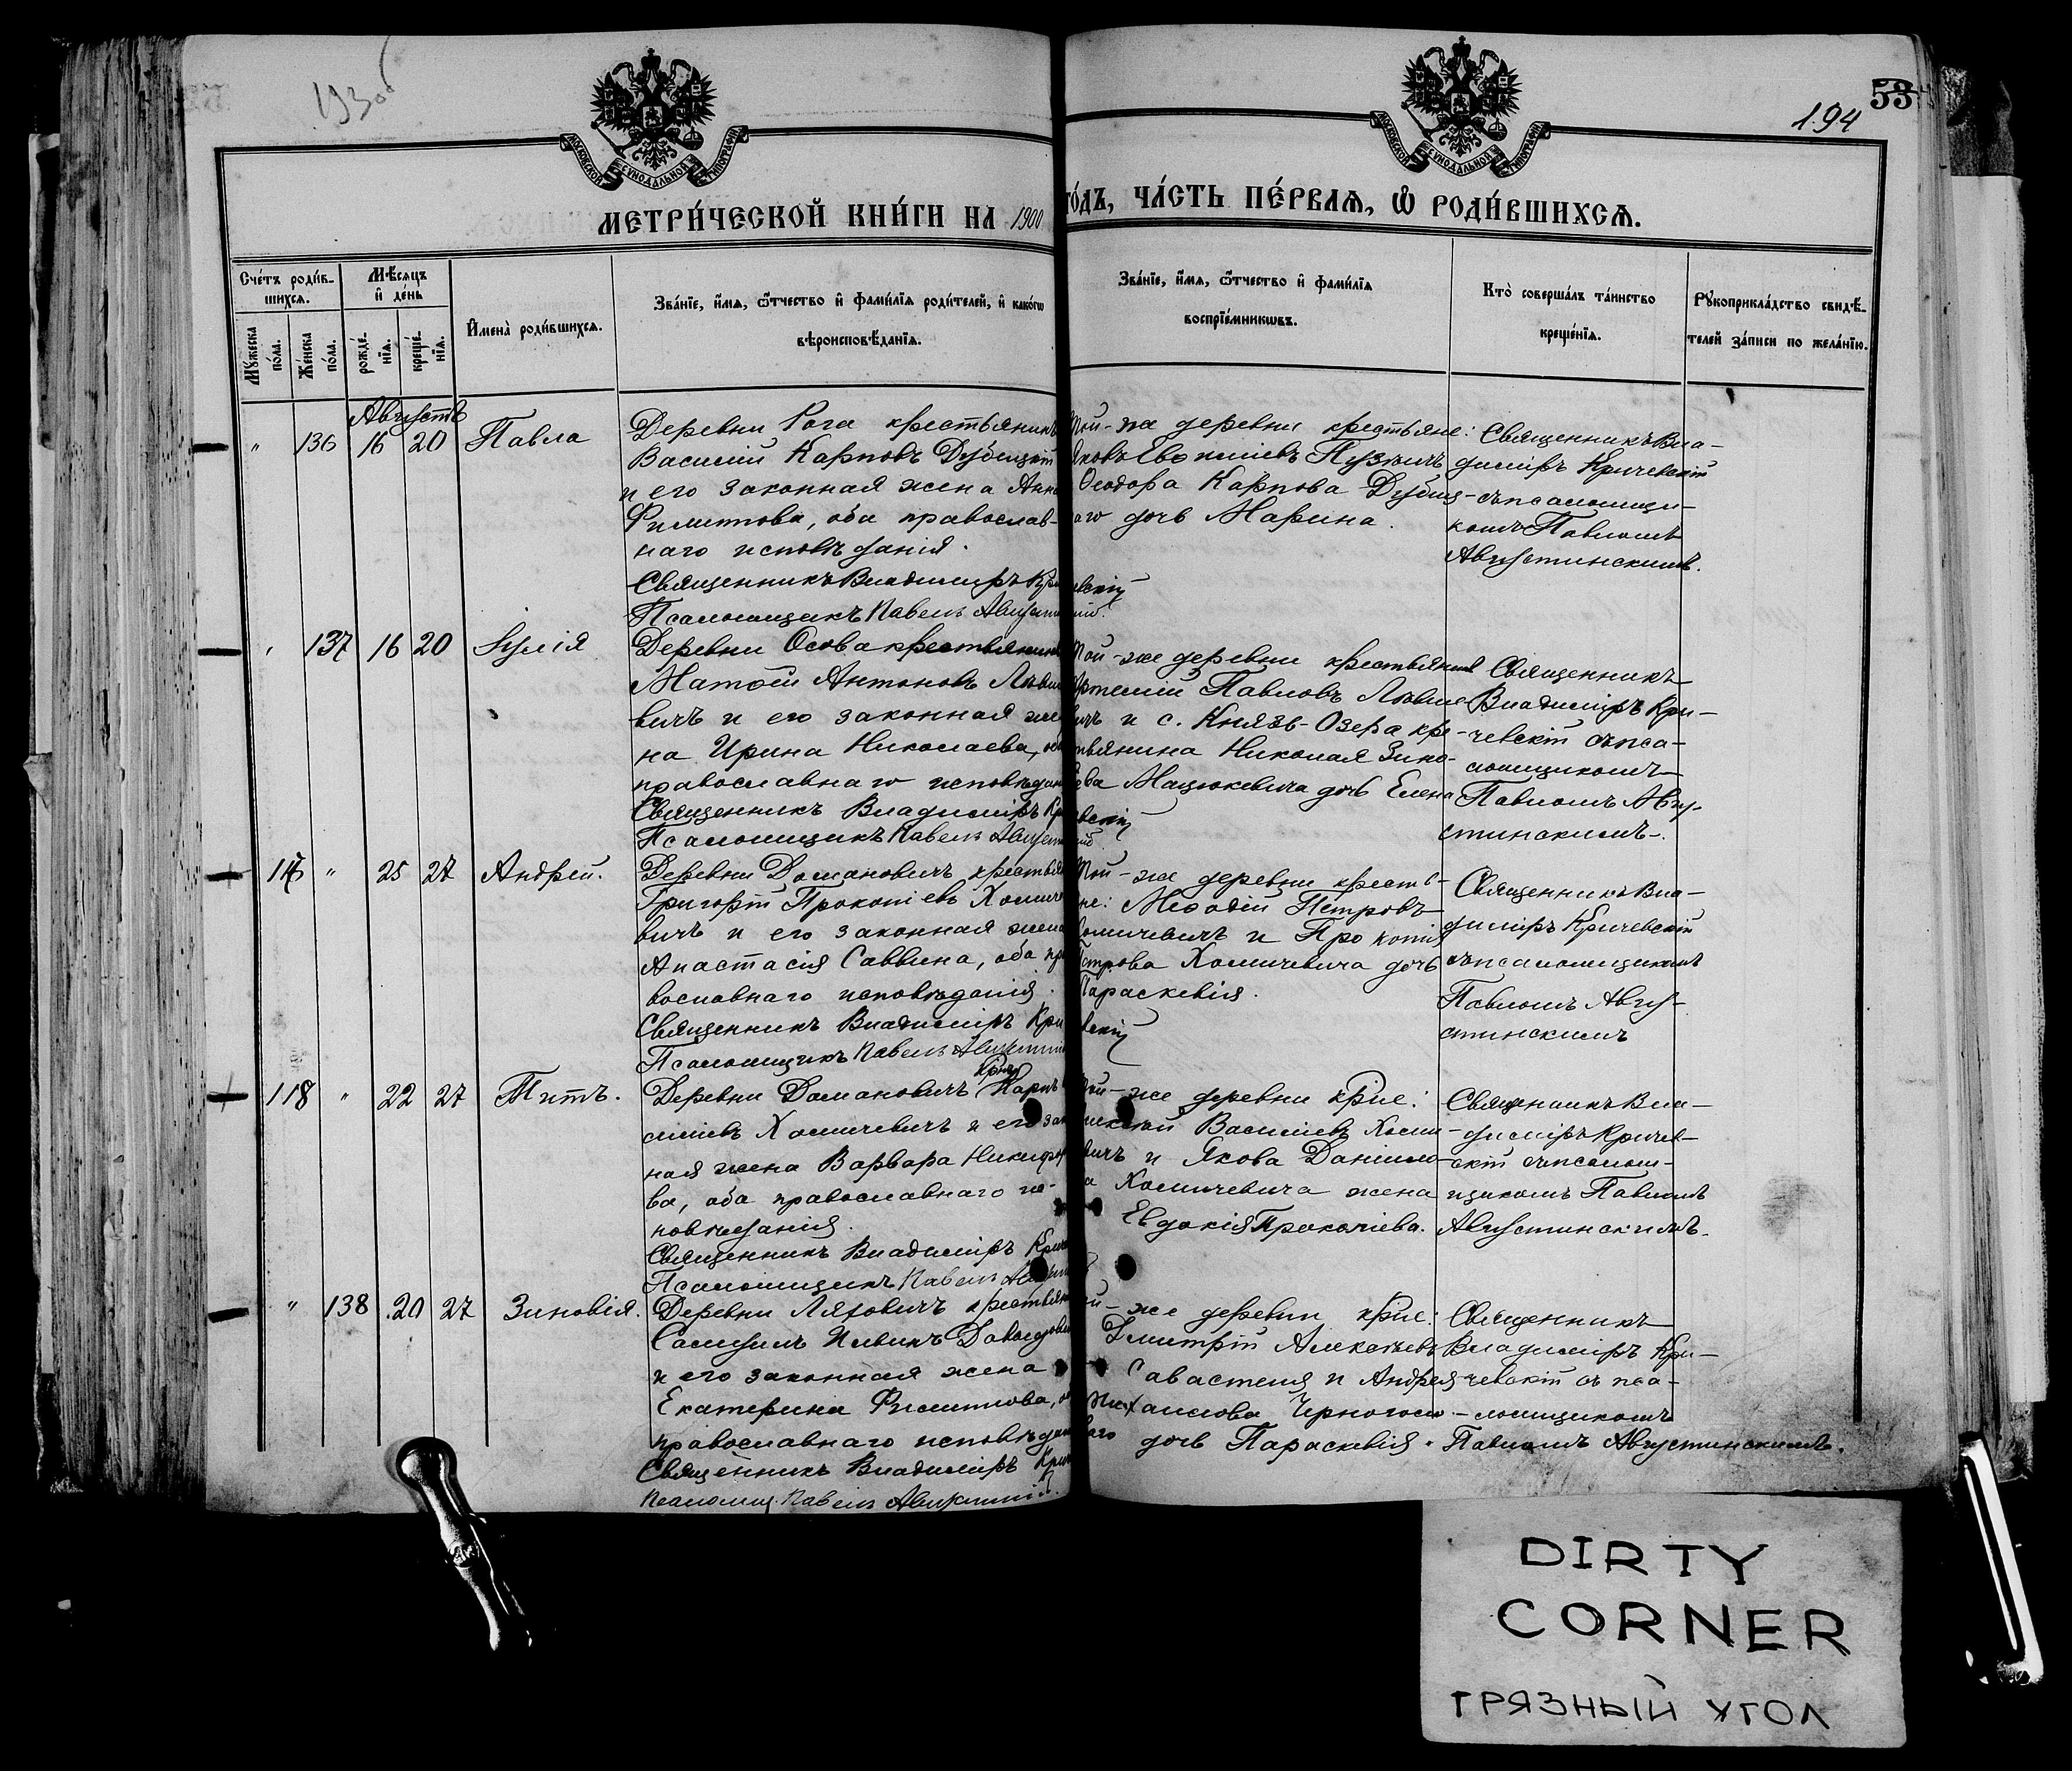 193об
53
194
МОСКОВСКОЙ СѴНОДАЛЬНОЙ ТИПОГРАФІИ
МОСКОВСКОЙ СѴНОДАЛЬНОЙ ТИПОГРАФІИ
МЕТРИ́ЧЕСКОЙ КНИ́ГИ НА 1900 ГО́ДЪ, ЧА́СТЬ ПЕ́РВАѦ, Ѡ҆ РОДИ́ВШИХСѦ.
Сче́тъ роди́в-
шихсѧ.
Мꙋ́жеска
по́ла.
Же́нска
по́ла.
Мѣ́сѧцъ
и҆ де́нь
рожде́-
нїѧ.
креще́-
нїѧ.
И҆мена̀ роди́вшихсѧ.
Зва́нїе, и҆́мѧ, ѻ҆́тчество и҆ фами́лїѧ роди́телей, и҆ како́гѡ
вѣроисповѣ́данїѧ.
Зва́нїе, и҆́мѧ, ѻ҆́тчество и҆ фами́лїѧ
воспрїе́мникѡвъ.
Кто̀ соверша́лъ та́инство
креще́нїѧ.
Рꙋкоприкла́дство свидѣ́-
телей за́писи по жела́нїю.
Августъ
" 136 16 20 Павла
Деревни Рога крестьянинъ
Василій Карповъ Дубицкій
и его законная жена Анна
Филиппова, оба православ-
наго исповѣданія.
Священникъ Владиміръ Кри
Псаломщикъ Павелъ Августи
Той-же деревни крестьяне:
Яковъ
Ѳеодора Карпова Дубиц-
аго дочь Марина.
евскій
Священникъ Вла-
диміръ Кричевскій
съ псаломщи-
комъ Павломъ
Августинскимъ.
" 137 16 20 Іулія
Деревни Осова крестьянинъ
Матѳей Антоновъ Львие
вичъ и его законная же
на Ирина Николаева, оба
православнаго исповѣдан
Священникъ Владиміръ Кри
Псаломщикъ Павелъ Августи
Той-же деревни крестьянинъ
Артемій Павловъ
вичъ и с. Князь-Озера кре-
стьянина Николая Зино-
ева Мацюкевича дочь Елена
евскій
Священникъ
Владиміръ Кри-
чевскій съ пса-
ломщикомъ
Павломъ Авгу-
стинскимъ.
117 " 25 27 Андрей.
Деревни Домановичъ крестьян
Григорій Прокопіевъ Хоми
вичъ и его законная жена
Анастасія Саввина, оба пра
вославнаго исповѣданія.
Священникъ Владиміръ Кри
Псаломщикъ Павелъ Августи
Той-же деревни кресть-
не: Меѳодій Петровъ
Хомичевичъ и Прокопія
Петрова Хомичевича дочь
Параскевія.
евскій
Священникъ Вла-
диміръ Кричевскій
съ псаломщикомъ
Павломъ Авгу-
стинскимъ
118 " 22 27 Титъ.
Деревни Домановичъ Карпъ
Хомичевичъ и его зак
ная жена Варвара Никифо
ва, оба православнаго ис-
повѣданія.
Священникъ Владиміръ Кри
Псаломщикъ Павелъ Августи
Той-же деревни кр-не:
Василіевъ Хоми-
вичъ и Якова Данило-
а Хомичевича жена
Евдокія Прокопіева.
Священникъ Вла-
диміръ Кричев-
скій съ псалом-
щикомъ Павломъ
Августинскимъ.
" 138 20 27 Зиновія.
Деревни Ляховичъ крестьян
и его законная жена
Екатерина Филиппова, о
православнаго исповѣдан
Священникъ Владиміръ Кри
Псаломщ. Павелъ Августинскій.
ой-же деревни кр-не:
Димитрій Алексѣевъ
Савастеня и Андрея
Михайлова
дочь Параскевія.
Священникъ
Владиміръ Кри-
чевскій съ пса-
ломщикомъ
Павломъ Августинскимъ.
DIRTY
CORNER
ГРЯЗНЫЙ УГОЛ